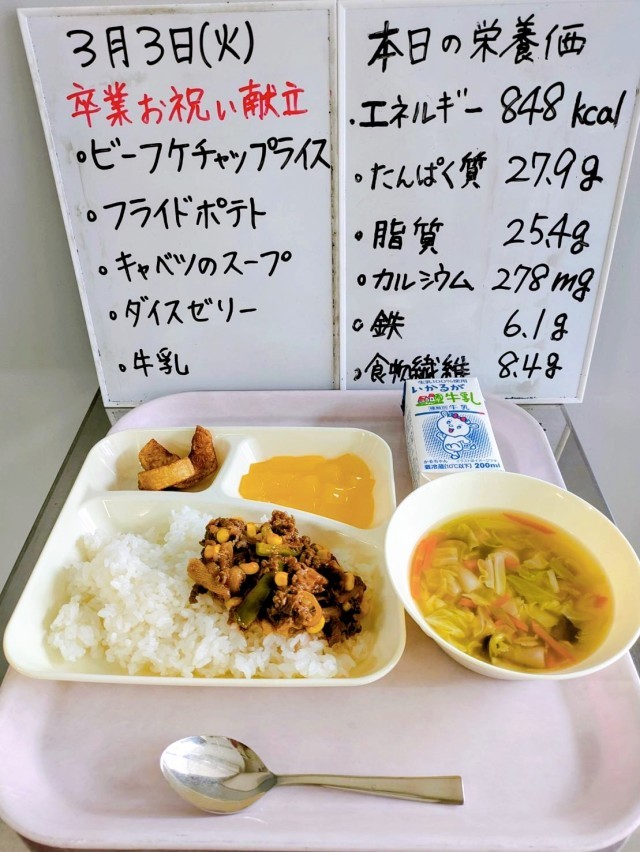 3月3日(火)
卒業お祝い献立
・ビーフケチャップライス
・フライドポテト
・キャベツのスープ
・ダイスゼリー
・牛乳
本日の栄養価
・エネルギー 848 kcal
・たんぱく質 27.9g
・脂質 25.4g
・カルシウム 278mg
・鉄 6.1g
・食物繊維 8.4g
生乳100%使用
いかるが
牛乳
種類別 牛乳
要冷蔵(10℃以下) 200ml